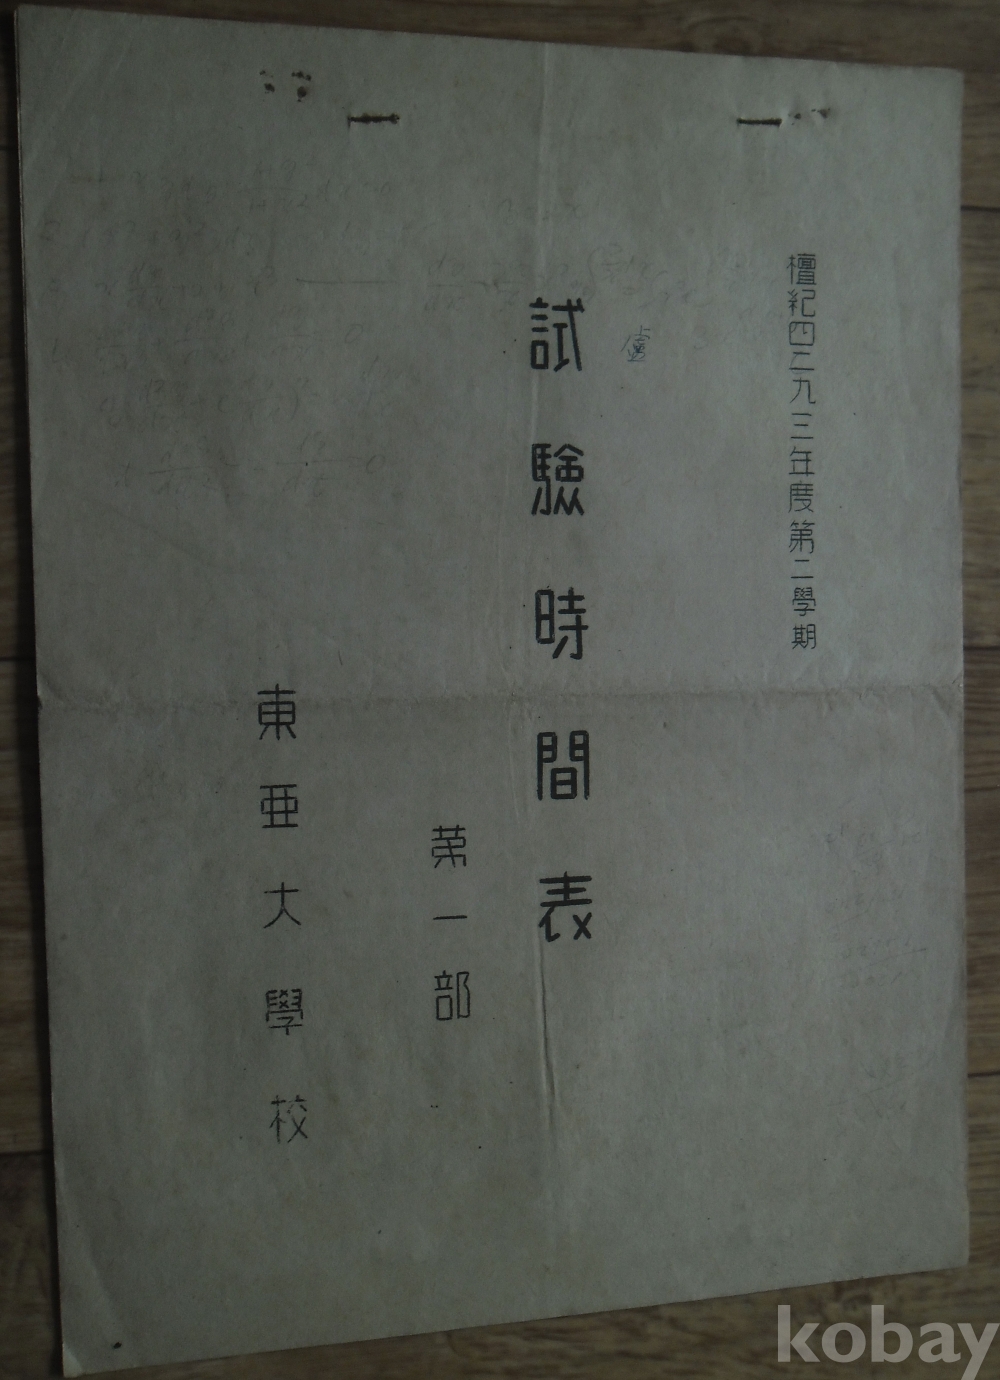 檀紀四二九三年度第二學期
試驗時間表
第一部
東亜大學校
kobay